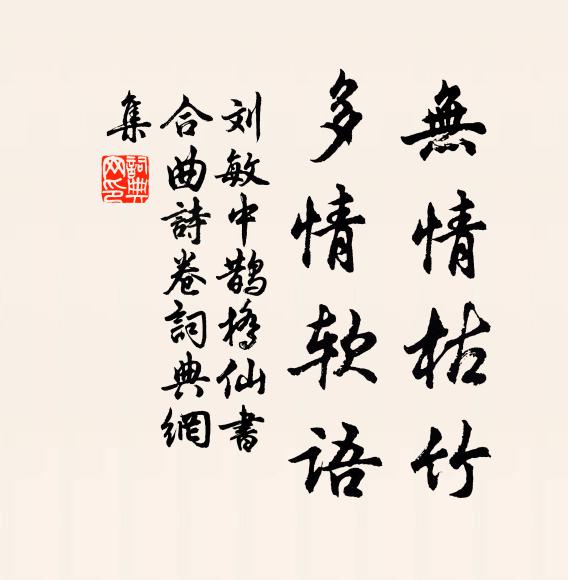 無情枯竹
多情软语
刘敏中鹊桥仙書
合曲詩卷詞典網
集
詞典網印